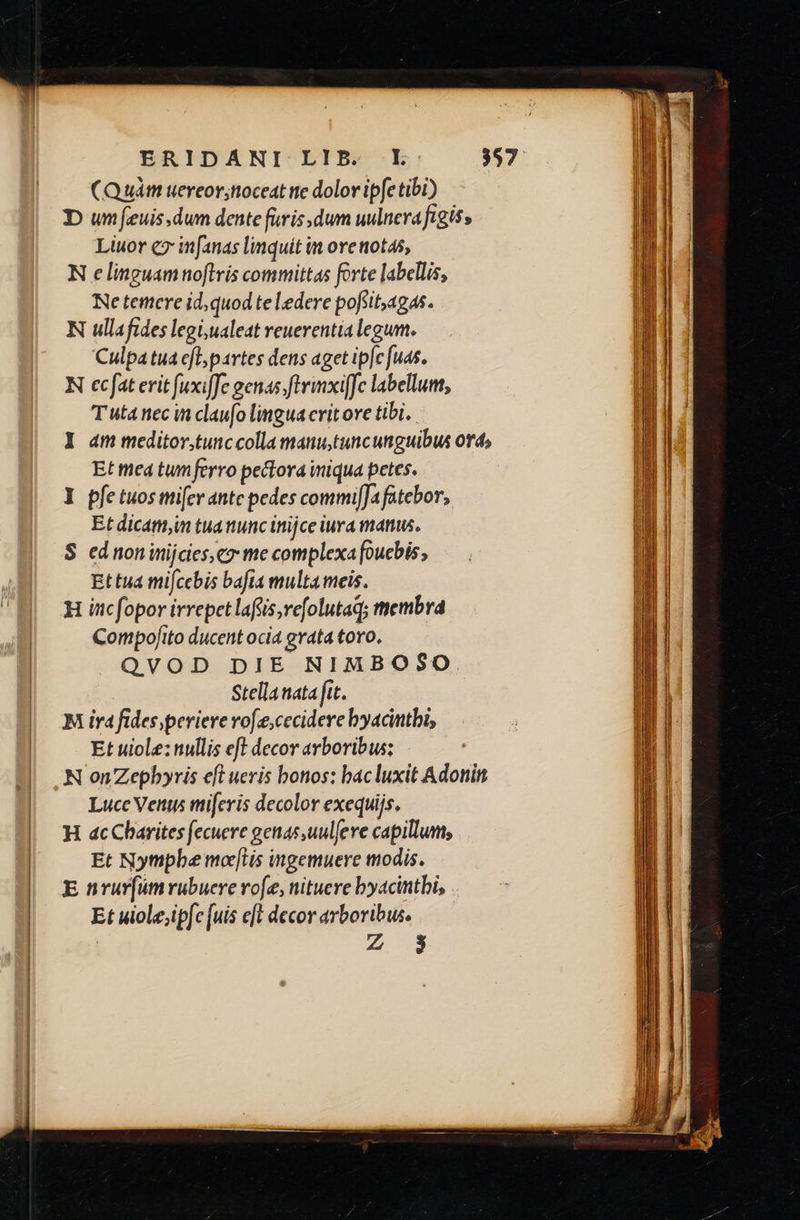 ERIDANI LIB. I. 357
(Quàm uereor, noceat ne dolor ipſe tibi)
D um ſæuis, dum dente furis, dum uulnera figis,
Liuor & inſanas linquit in ore notas,
N e linguam noſtris committas forte labellis,
Ne temere id, quod te ledere poſsit, agas.
N ulla fides legi, ualeat reuerentia legum.
Culpa tua eſt, partes dens aget ipſe ſuas.
N ec ſat erit ſuxiſſe genas, ſtrinxiſſe labellum,
Tuta nec in clauſo lingua erit ore tibi.
I am meditor, tunc colla manu, tunc unguibus ora,
Et mea tum ferro pectora iniqua petes.
I pſe tuos miſer ante pedes commiſſa fatebor,
Et dicam, in tua nunc inijce iura manus.
S ed non inijcies, & me complexa fouebis,
Et tua miſcebis baſia multa meis.
H inc ſopor irrepet laſsis, reſolutaq; membra
Compoſito ducent ocia grata toro.
QVOD DIE NIMBOSO
Stella nata ſit.
M ira fides, periere roſæ, cecidere hyacinthi,
Et uiole: nullis eſt decor arboribus:
N on Zephyris eſt ueris honos: hac luxit Adonin
Luce Venus miſeris decolor exequijs.
H ac Charites ſecuere genas, uulſere capillum,
Et Nymphe mœſtis ingemuere modis.
E n rurſùm rubuere roſæ, nituere hyacinthi,
Et uiole, ipſe ſuis eſt decor arboribus.
Z 3